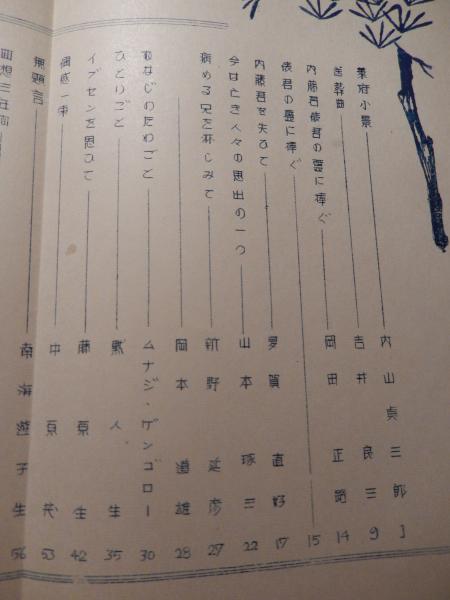 葉府小景 内山貞三郎 1
葬曲 吉井良三 9
内藤君俵君の霊に捧ぐ 岡田正路 14
俵君の霊に捧ぐ 15
内藤君を失ひて 多賀直好 17
今は亡き人々の思出の一つ 山本琢三 22
病める兄を悲しみて 新野延彦 27
岡本道雄 28
むなじのたわごと ムナジ・ゲンゴロー 30
ひとりごと 黙人生 35
イプセンを思ひて 藤原生 42
偶感一束 中原茂 53
無題言 南海遊子生 56
回想三年間